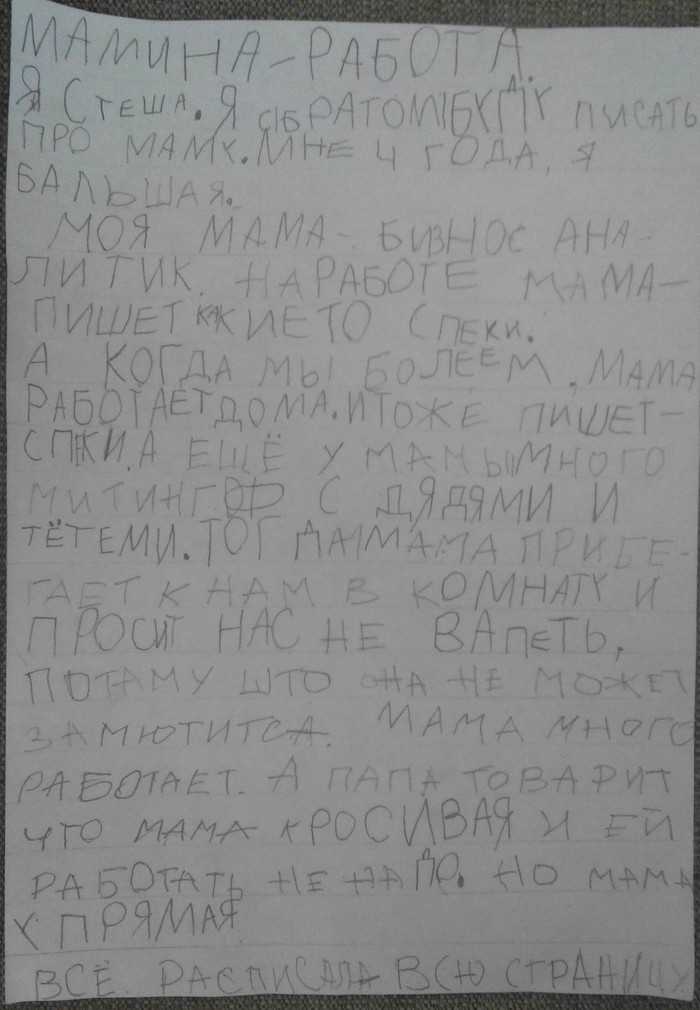 МАМИНА-РАБОТА.
Я СТЕША. Я С БРАТОМ БУДУ ПИСАТЬ
ПРО МАМУ. МНЕ 4 ГОДА, Я
БАЛЬШАЯ.
МОЯ МАМА- БИЗНОС АНА-
ЛИТИК. НА РАБОТЕ МАМА-
ПИШЕТ КАКИЕТО СПЕКИ.
А КОГДА МЫ БОЛЕЕМ, МАМА
РАБОТАЕТ ДОМА. И ТОЖЕ ПИШЕТ-
СПЕКИ. А ЕЩЁ У МАМЫ МНОГО
МИТИНГОФ С ДЯДЯМИ И
ТЁТЕМИ. ТОГДА МАМА ПРИБЕ-
ГАЕТ К НАМ В КОМНАТУ И
ПРОСИТ НАС НЕ ВАПЕТЬ,
ПОТАМУ ШТО ОНА НЕ МОЖЕТ
ЗАМЮТИТСА. МАМА МНОГО
РАБОТАЕТ. А ПАПА ГОВАРИТ
ЧТО МАМА КРОСИВАЯ И ЕЙ
РАБОТАТЬ НЕ НАДО. НО МАМА
УПРЯМАЯ
ВСЁ. РАСПИСАЛА ВСЮ СТРАНИЦУ